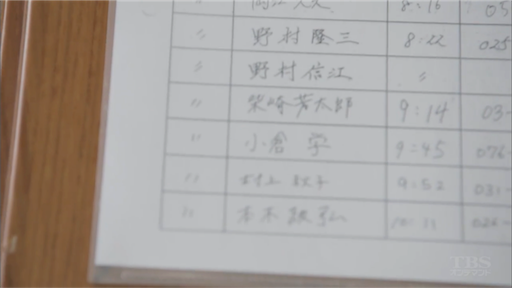 8:16 05
〃 野村隆三 8:22 025
〃 野村信江 〃
〃 柴崎芳太郎 9:14 03-
〃 小倉 学 9:45 076-
〃 村上 9:52 031-
〃 10:11
TBS
オンデマンド